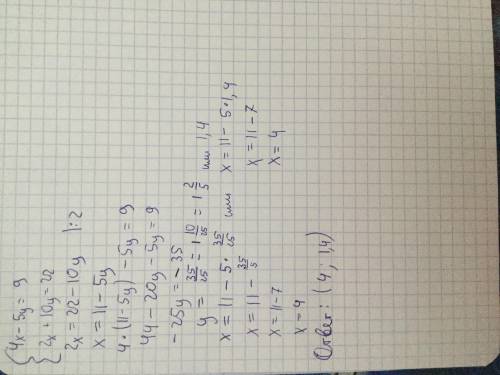 {4x - 5y = 9
{2x + 10y = 22
2x = 22 - 10y |:2
x = 11 - 5y
4·(11 - 5y) - 5y = 9
44 - 20y - 5y = 9
-25y = -35
y = 35/25 = 1 10/25 = 1 2/5 или 1,4
x = 11 - 5·35/25 или x = 11 - 5·1,4
x = 11 - 35/5 x = 11 - 7
x = 11 - 7 x = 4
x = 4
Ответ: (4; 1,4)